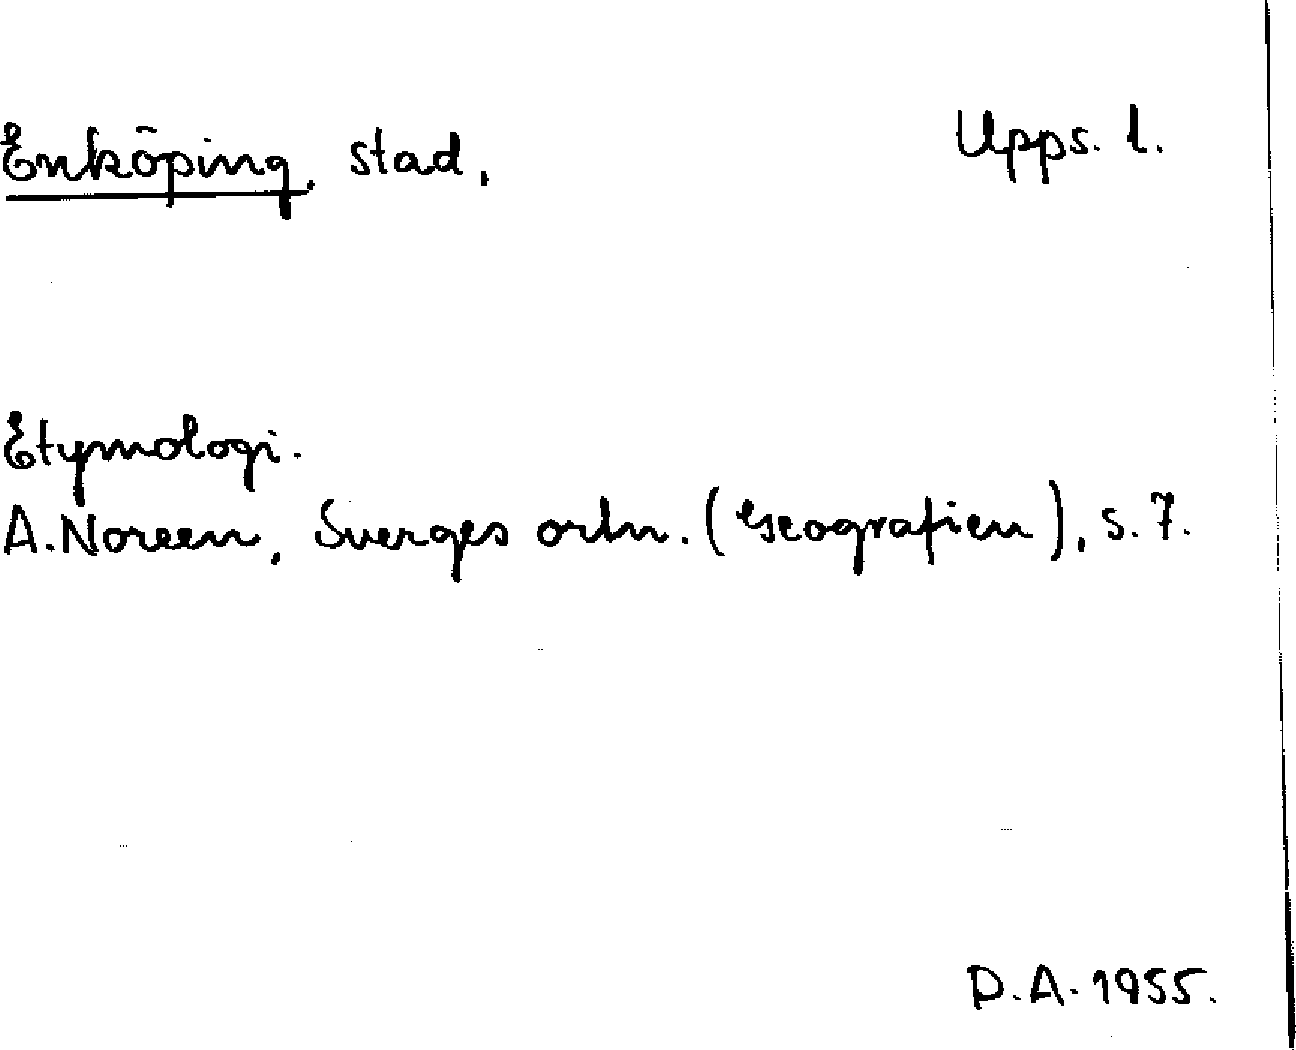 Enköping, stad, Upps. l.
Etymologi.
A. Noreen, Sverges ortn. (Geografien), s. 7.
D.A. 1955.